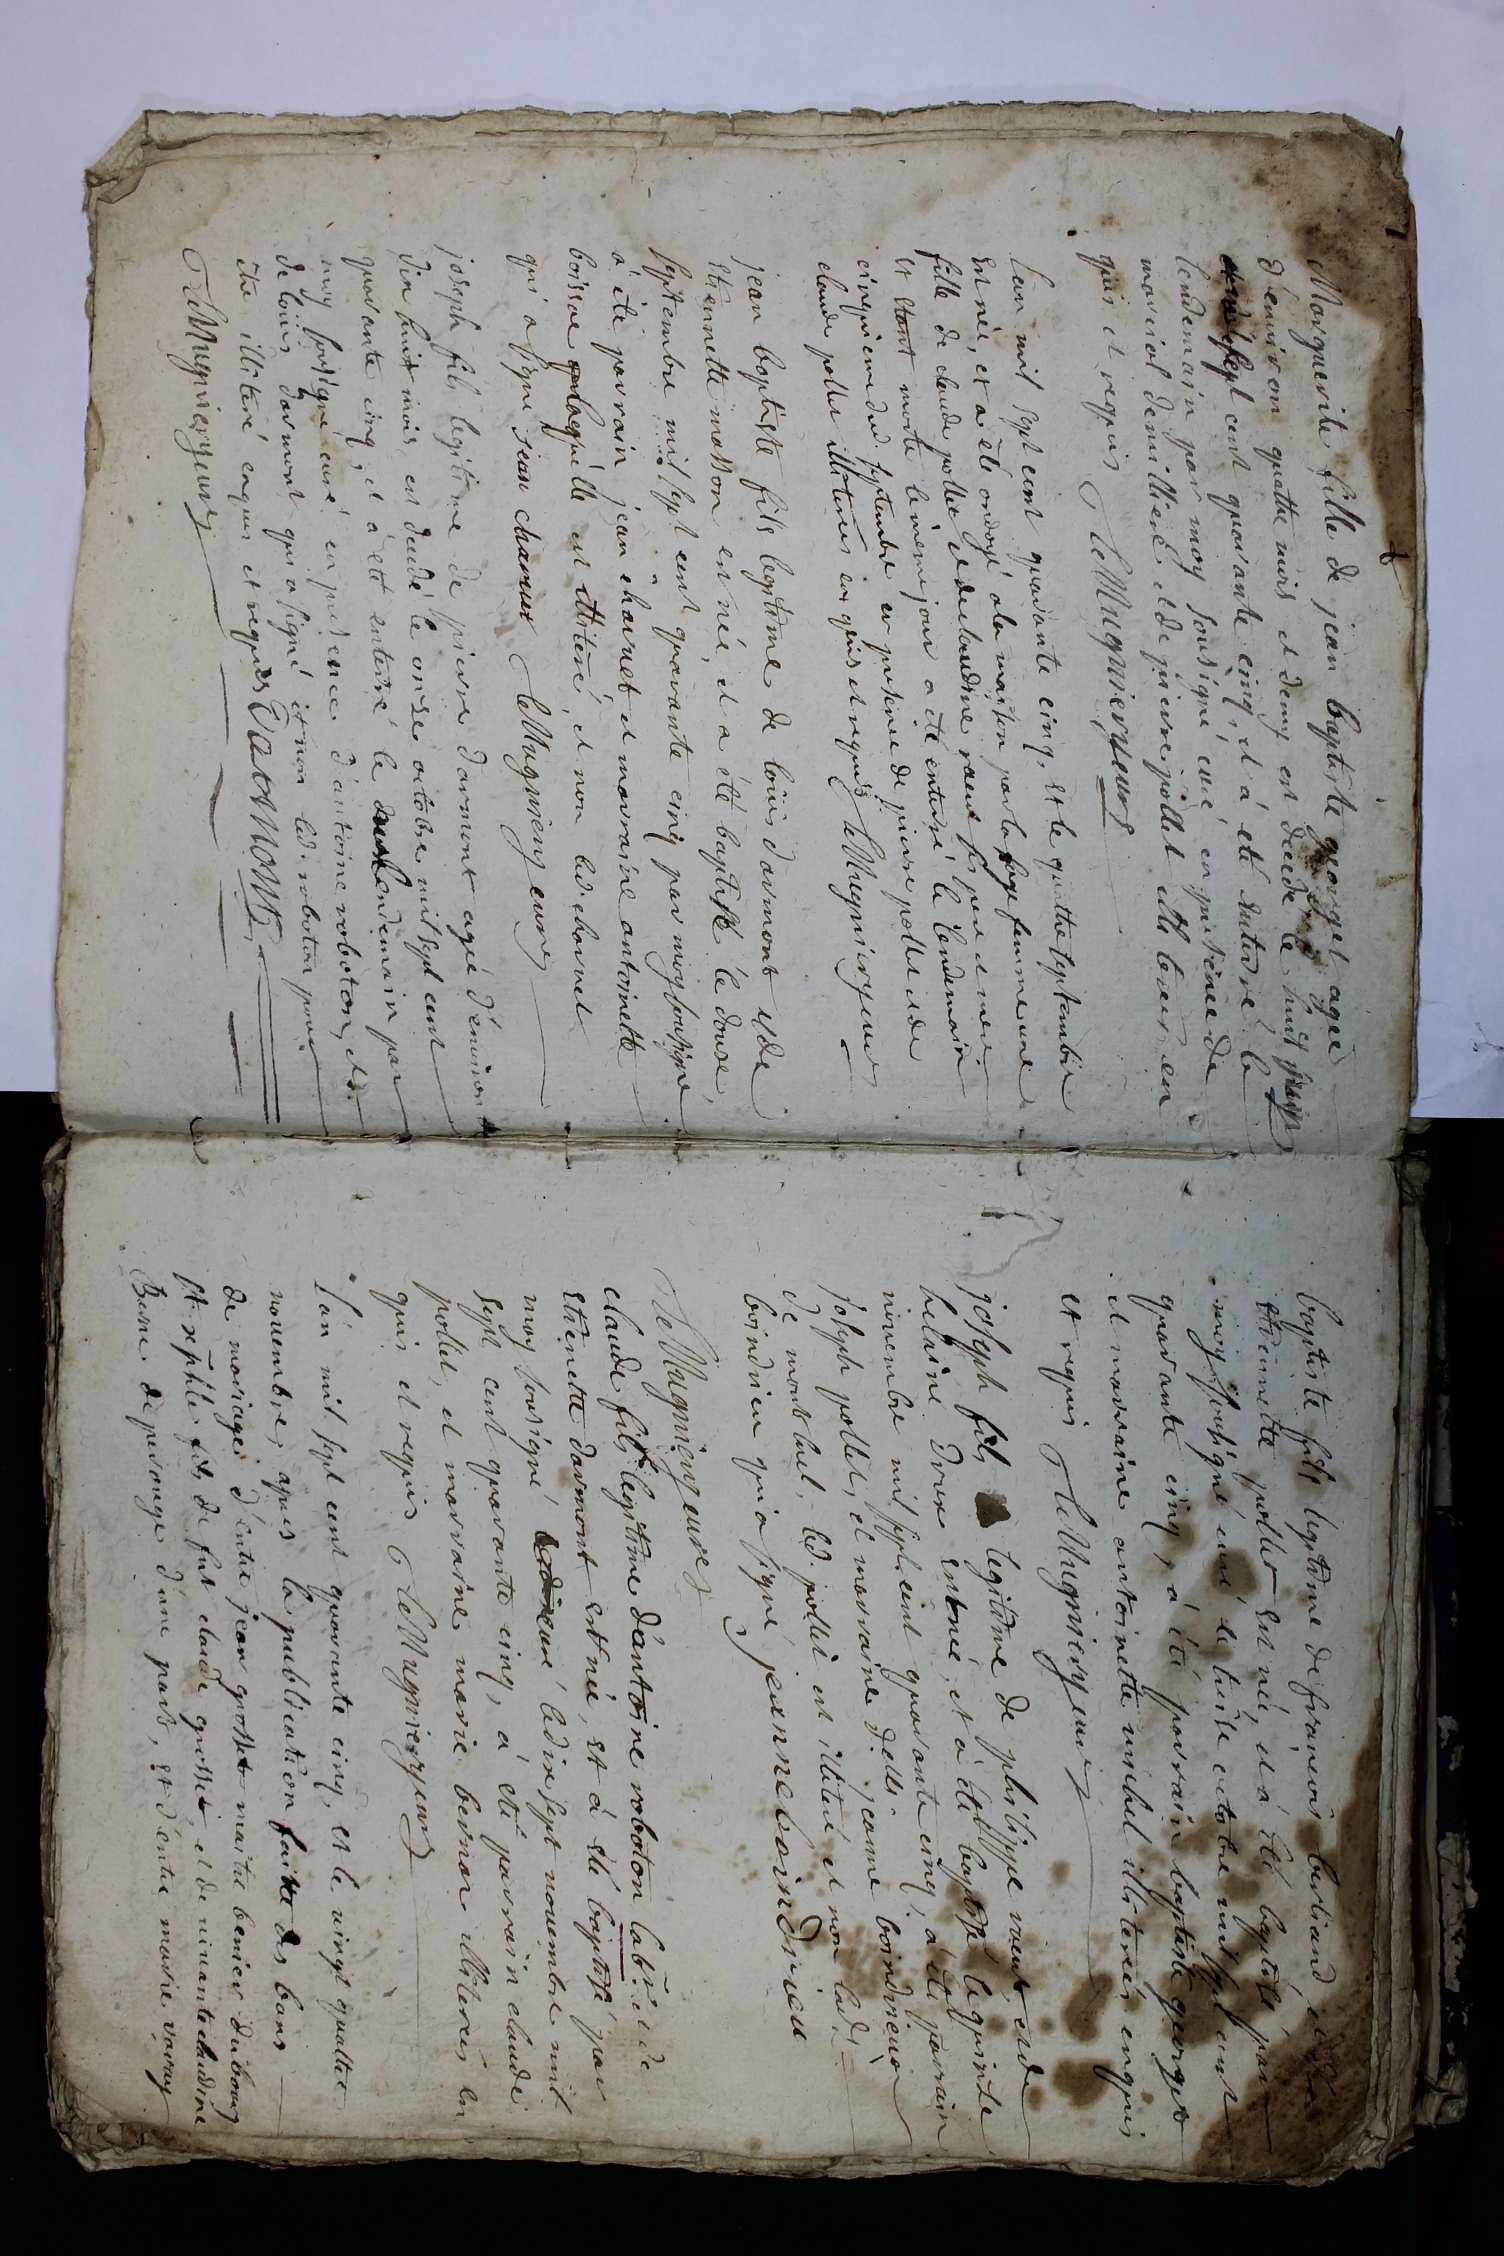 Marguerite fille de jean baptiste georget agée
d'environ quattre mois et demy est decedé le huit
mil sept cent quarante cinq, et à eté enterré le
lendemain par moy sousigné curé en presence de
mariol demillieré et de pierre pollet illiterés en
quis et requis LeMugnier curé
Lan mil sept cent quarante cinq, et le quattre septembre
est né, et a été ondoyé a la maison par la sage femme une
fille de claude pollet et de claudine raent ses pere et mere
et etant morte le meme jour a eté enterré le lendemain
cinquieme dud. septembre en presence de pierre pollet et de
claude pollet illiterés enquis et requis LeMugnier curé
jean baptiste fils legitime de louis darmont et de
etiennette masson est né, et a été baptisé le douse
septembre mil sept cent quarante cinq par moy sousigné
à été parrain jean charvet et marraine antoinette
boisson laquelle est illiteré, et non led. charvet
qui a signé jean charvet LeMugnier curé
joseph fils legitime de pierre darmont agé d'environ
dix huit mois est decedé le onse octobre mil sept cent
quarante cinq, et a eté enterré le lendemain par
moy sousigné curé en presence d'antoine roboton, et
de louis darmont qui a signé et non led. roboton pour
etre illiteré enquis et requis Darmont
LeMugnier curé
baptiste fils legitime de francois berliand, et de
etiennette pollet est né, et à été baptisé par
moy sousigné curé le treise octobre mil sept cent
quarante cinq, à été parrain baptiste georget
et marraine antoinette michel illiterés enquis
et requis LeMugnier curé
joseph fils legitime de philippe raent et de
helaine drure est né, et à été baptisé le quinse
novembre mil sept cent quarante cinq, à été parrain
joseph pollet, et marraine delle jeanne boindrieu
de montluel, led. pollet est illiteré et non lad.
boindrieu qui a signé, jeanne boindrieu
LeMugnier curé
claude fils legitime d'antoine roboton lab.r et de
etiennette darmont est né, et à été baptisé par
moy sousigné curé ledix sept novembre mil
sept cent quarante cinq, à été parrain claude
pollet, et marraine marie bernon illiterés en
quis et requis LeMugnier curé
L'an mil sept cent quarante cinq, et le vingt quattre
novembre, apres la publication faitte des bans
de mariages d'entre jean grosset maitre
fils de fut claude grosset et de vivante claudine
d'une part, et d'entre marie